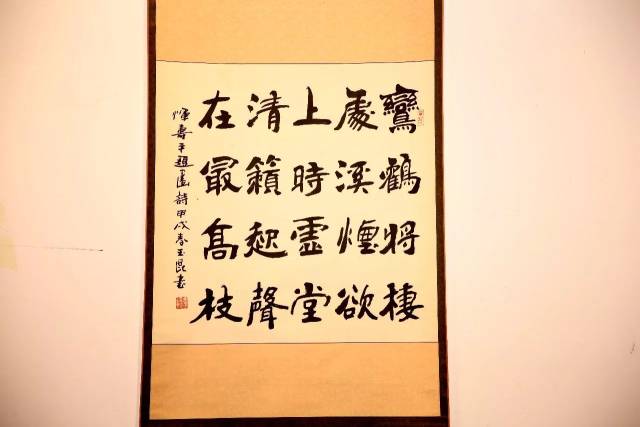 鸞鶴將棲
處溪煙欲
上時靈堂
清籟起聲
在最高枝
惲壽平題畫詩甲戌春玉崑書